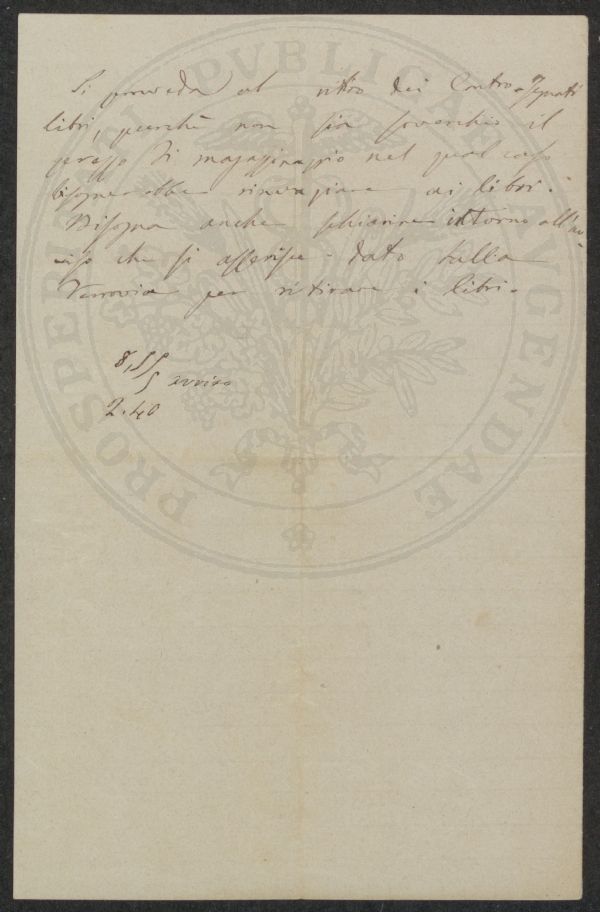 Si proceda al ritiro dei Contro-segnati
libri, purchè non sia soverchio il
prezzo di magazzinaggio nel qual caso
bisognerebbe rinunziare ai libri.
Bisogna anche schiarire intorno all'av-
viso che si asserisce dato dalla
Ferrovia per ritirare i libri.
8,55
5 avviso
2.40
PROSPERITATI PVBLICAE AVGENDAE